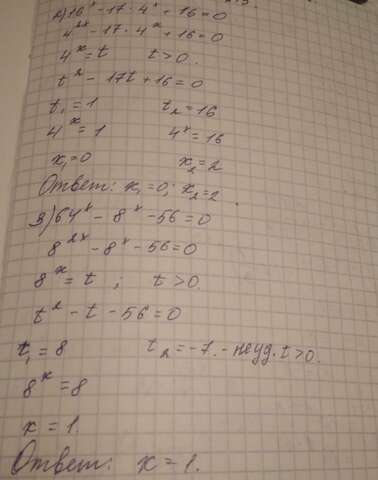 2) 16ˣ - 17 · 4ˣ + 16 = 0
4²ˣ - 17 · 4ˣ + 16 = 0
4ˣ = t t > 0.
t² - 17t + 16 = 0
t₁ = 1 t₂ = 16
4ˣ = 1 4ˣ = 16
x₁ = 0 x₂ = 2
Ответ: x₁ = 0; x₂ = 2.
3) 64ˣ - 8ˣ - 56 = 0
8²ˣ - 8ˣ - 56 = 0
8ˣ = t ; t > 0.
t² - t - 56 = 0
t₁ = 8 t₂ = -7. - неуд. t > 0.
8ˣ = 8
x = 1.
Ответ: x = 1.